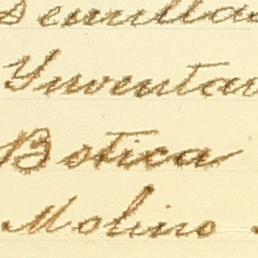 Semillas
Ynventar
Botica
Molino